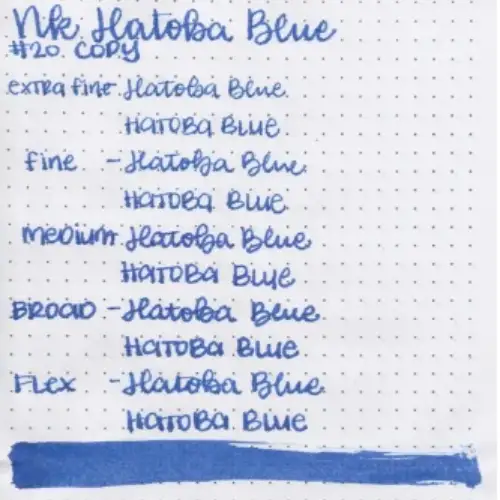 NK Hatoba Blue
#20 COPY
extra fine - Hatoba Blue
HaTOBa BLUE
fine - Hatoba Blue
HaTOBa BLUE
meDium - Hatoba Blue
HaTOBa BLUE
BROaD - Hatoba Blue
HaTOBa BLUE
FLex - Hatoba Blue
HaTOBa BLUE